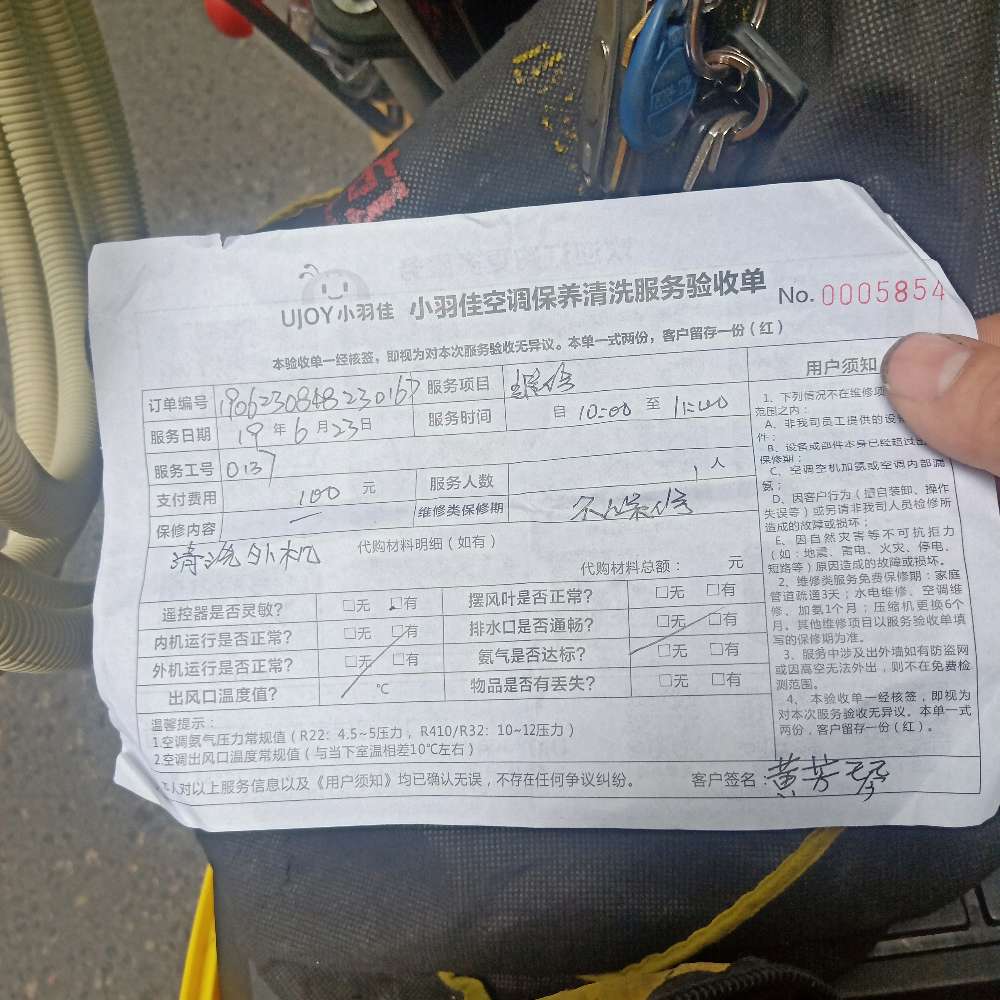 UJOY小羽佳 小羽佳空调保养清洗服务验收单 No. 0005854
本验收单一经核签，即视为对本次服务验收无异议。本单一式两份，客户留存一份（红）
订单编号 1906230848230167 服务项目 维修
服务日期 19 年 6 月 23 日 服务时间 自 10:00 至 11:00
服务工号 0137
支付费用 100 元 服务人数 1 人
保修内容 一 维修类保修期 不保修
清洗外机 代购材料明细（如有）
代购材料总额： 元
遥控器是否灵敏？ □无 □有 摆风叶是否正常？ □无 □有
内机运行是否正常？ □无 □有 排水口是否通畅？ □无 □有
外机运行是否正常？ □无 □有 氨气是否达标？ □无 □有
出风口温度值？ ℃ 物品是否有丢失？ □无 □有
温馨提示：
1.空调氨气压力常规值（R22：4.5~5压力，R410/R32：10~12压力）
2.空调出风口温度常规值（与当下室温相差10℃左右）
对以上服务信息以及《用户须知》均已确认无误，不存在任何争议纠纷。 客户签名：黄芳琴
用户须知
1、下列情况不在维修项
范围之内：
A、非我司员工提供的设
件；
B、设备或部件本身已经超过
保修期；
C、空调空机加氨或空调内部漏
氨；
D、因客户行为（擅自装卸、操作
失误等）或另请非我司人员检修所
造成的故障或损坏；
E、因自然灾害等不可抗拒力
（如：地震、雷电、火灾、停电、
短路等）原因造成的故障或损坏。
2、维修类服务免费保修期：家庭
管道疏通3天；水电维修、空调维
修、加氨1个月；压缩机更换6个
月。其他维修项目以服务验收单填
写的保修期为准。
3、服务中涉及出外墙如有防盗网
或因高空无法外出，则不在免费检
测范围。
4、本验收单一经核签，即视为
对本次服务验收无异议。本单一式
两份，客户留存一份（红）。